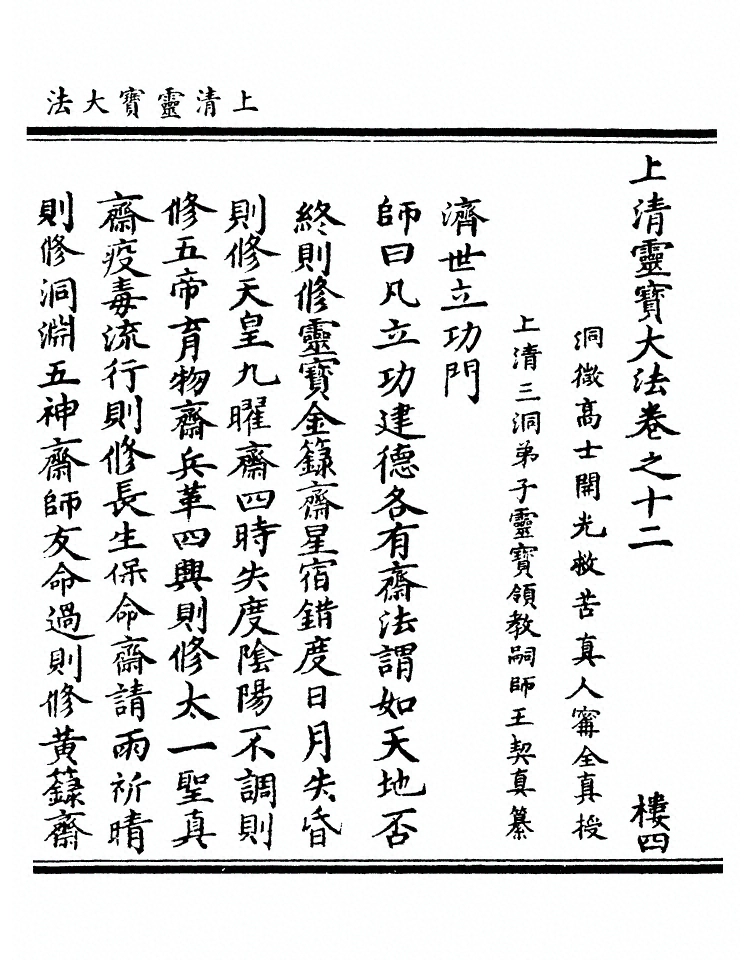 上清靈寶大法
上清靈寶大法卷之十二 樓四
洞微高士開光救苦真人甯全真授
上清三洞弟子靈寶領教嗣師王契真纂
濟世立功門
師曰凡立功建德各有齋法謂如天地否
終則修靈寶金籙齋星宿錯度日月失昏
則修天皇九曜齋四時失度陰陽不調則
修五帝育物齋兵革四興則修太一聖真
齋疫毒流行則修長生保命齋請雨祈晴
則修洞淵五神齋師友命過則修黃籙齋